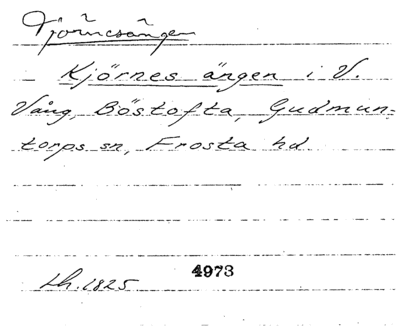 Tjörnesängen
- Kjörnes ängen i V.
Vång, Böstofta, Gudmun-
torps sn, Frosta hd.
4973
Lh. 1825